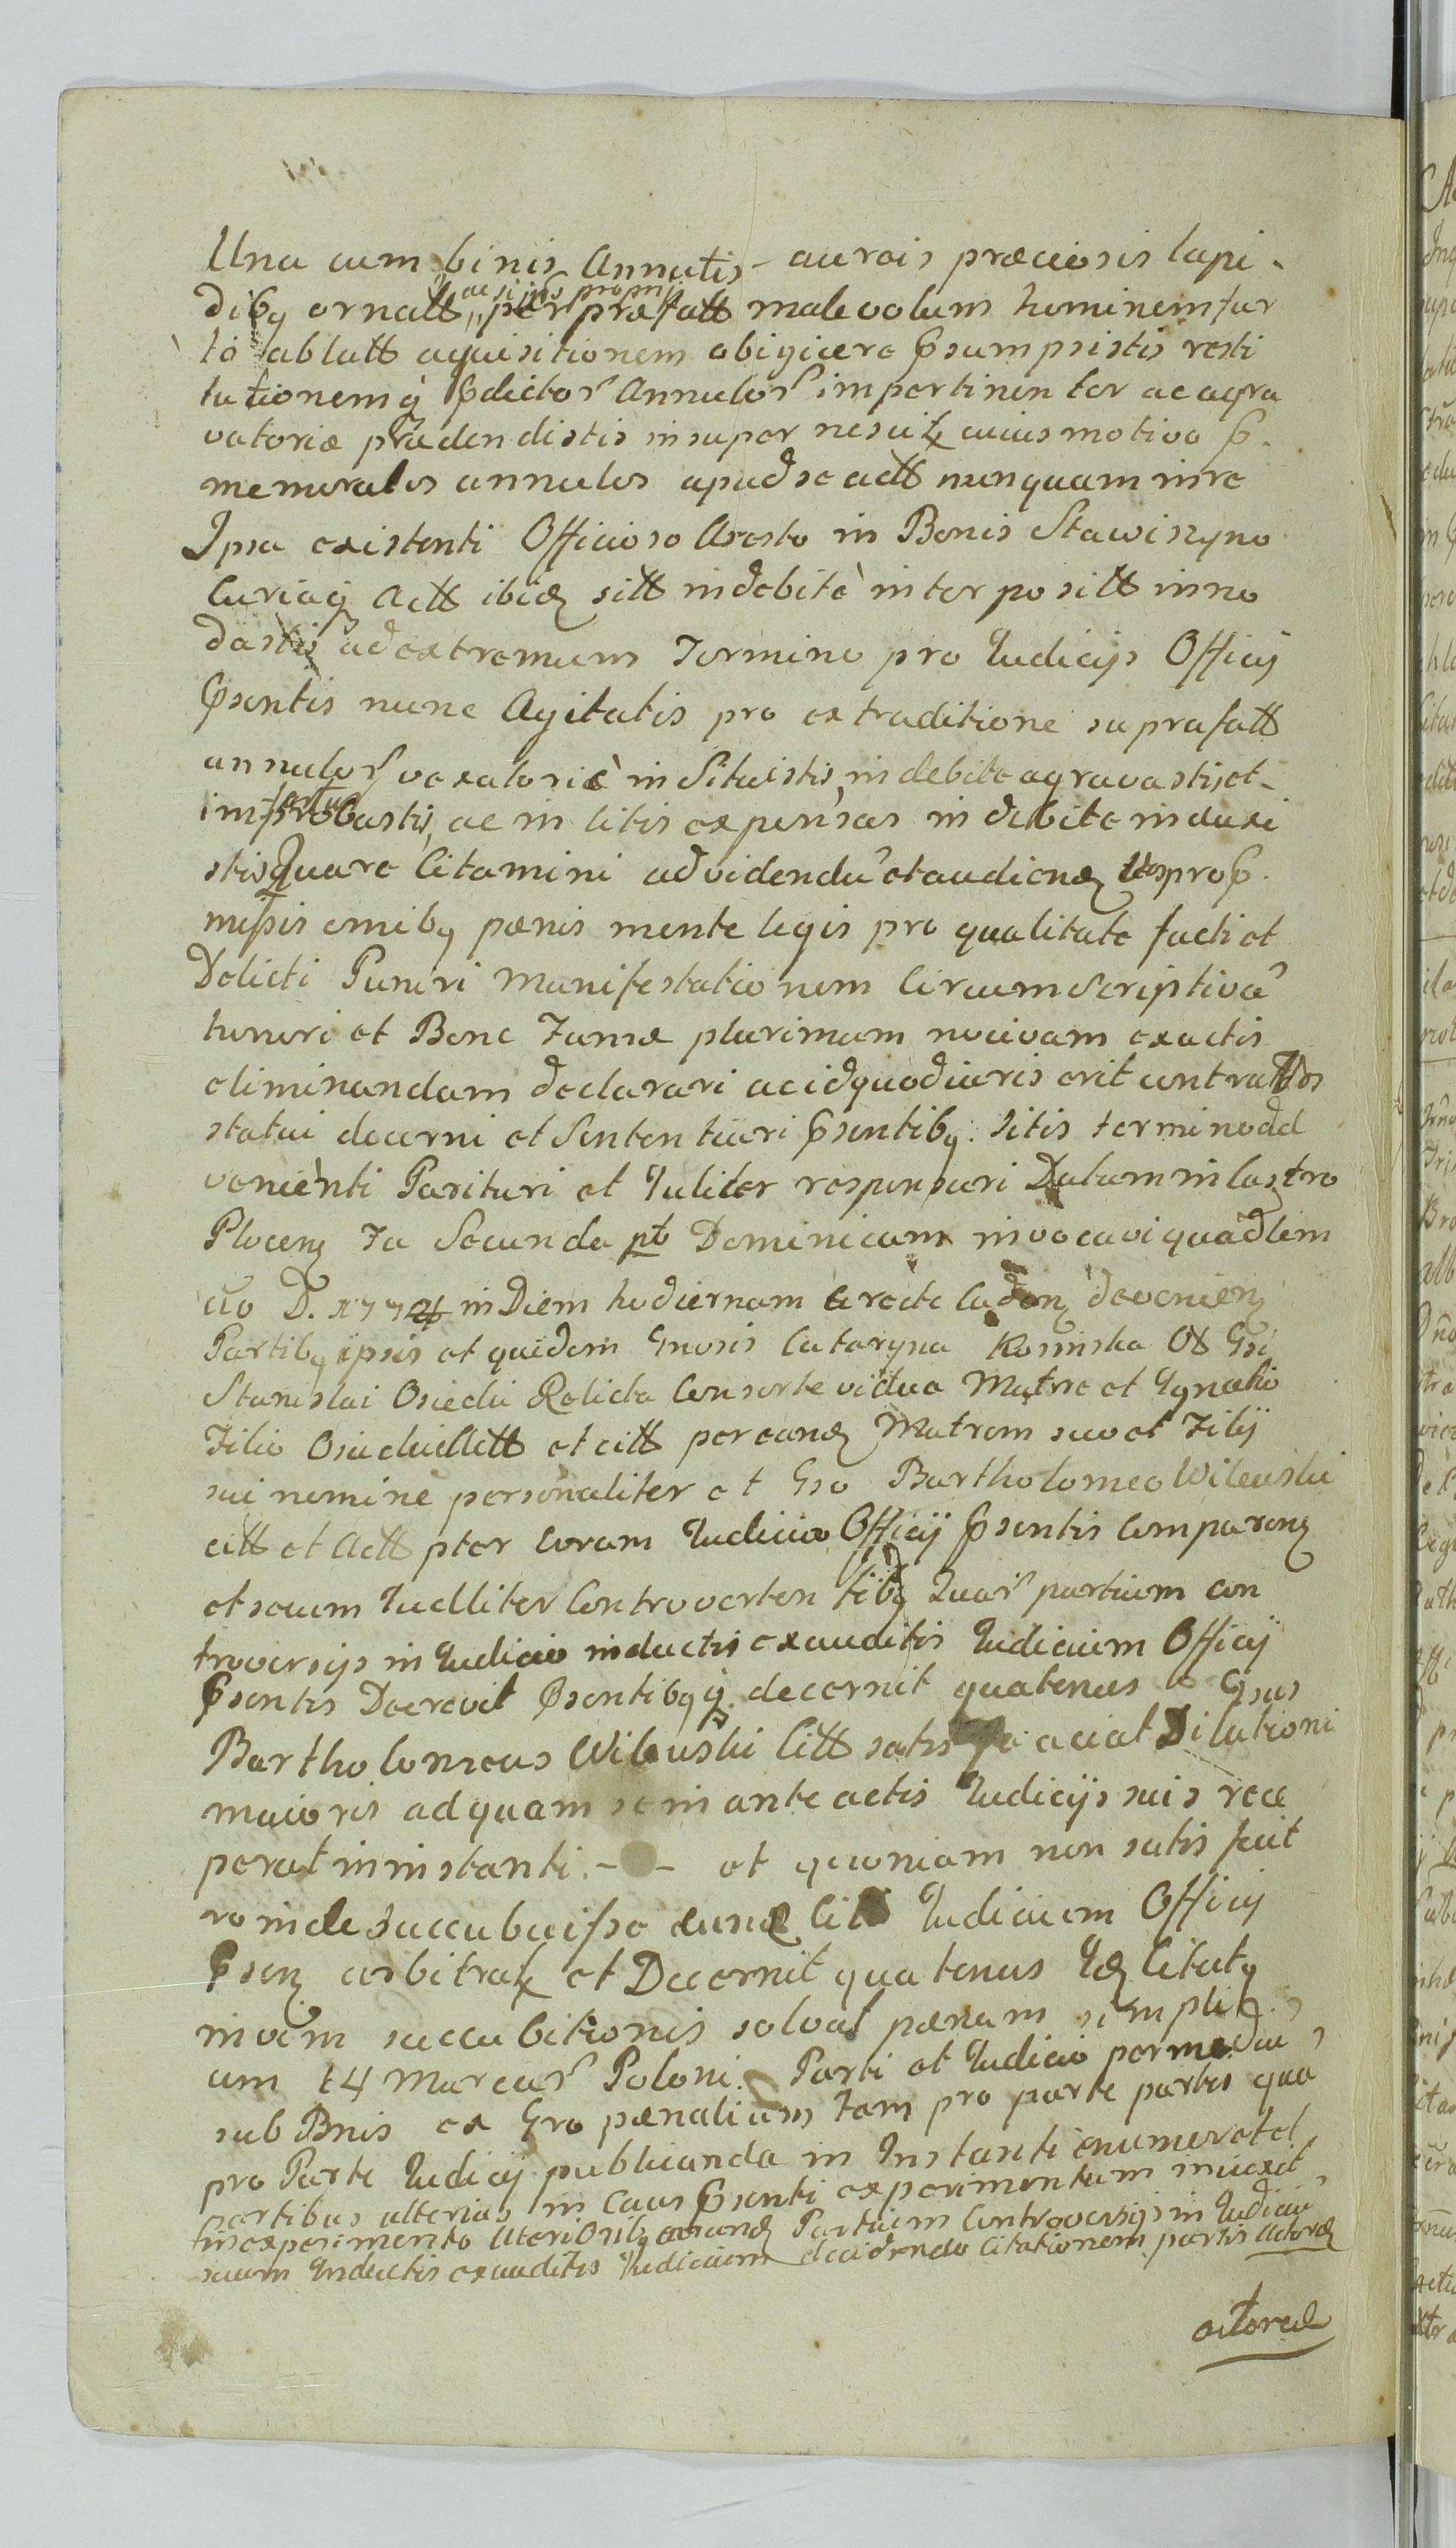 Una cum binis Annulis aureis præciosis lapi-
ac si ipsis proprijs
dibq ornatt per præfatt malevolum hominem fur
to ablatt aquisitionem obigicere Psumpsistis resti
tutionemq Pdictor Annulor impertinenter ac agra
vatoriæ prædendistis insuper nescitx cuius motivo P.
memoratos annulos apud se actt nunquam in re
Ipsa existenti Officioso Aresto in Bonis Stawiszyno
Curiaq Actt ibid sitt indebitè interposítt inno
dastis ad extremum Termino pro Iudicijs Officij
Psentis nunc Agitatis pro extraditione suprafatt
annulor vexatoriè in Situistis, indebite agravastis et
improbastis, ac in litis expensas indebite induxi
stis Quare Citamini ad videndu et audiend pro P.
missis omibq pænis mente legis pro qualitate facti et
Delicti Puniri Manifestationem Circumscriptivã
honori et Bone Famæ plurimum nocivam ex actis
eliminandam declarari ac id quod iuris erit contra Vos
statui decerni et Sententiari Psentibq. sitis termino add
venienti Parituri et Iuliter responsuri Datum in Castro
Plocen Fa Secunda pt Dominicam invocavi quadlem
ão D. 1774 in Diem hodiernam directe caden devenien
Partibq ipsis et quidem Gnosis Cataryna Kosinska Ol Gsi
Stanislai Osiecki Relicta Consorte vidua Matre et Ignatio
Filio Osiecki Actt et citt per eand Matrem suo et Filij
sui nomine personaliter et Gso Bartholomeo Wilewski
citt et Actt pter coram Iudicio Officij Psentis Comparen
et secum Iudliter Controvertentibq Quar partium con
troversijs in Iudicio inductis exauditis Iudicium Officij
Psentis Decrevit Psentibqq decernit quatenus Gsus
Bartholomeus Wilewski Citt satis faciat Dilationi
maioris ad quam se in ante actis Iudicijs suis rece
perat in instanti. - - et quoniam non satis fecit
ro inde succubuisse eund Citt Iudicium Officij
Psen arbitratx et Decernit quatenus Id Citatq
in vim succubitionis solvat pænam simplic
um 14 Marcar Poloni. Parti et Iudicio per mediu
sub Bnis ex Gro pænalium tam pro parte partis qua
pro Parte Iudicij publicanda in Instanti enumeret et
partibus ulterius in Caus Psenti experimentum iniuxit
in experimento Ulterioribq earund Partium Controversijs in Iudicio
suum Inductis exauditis Iudicium decidendo Citationem partis Actoreæ
actoreæ